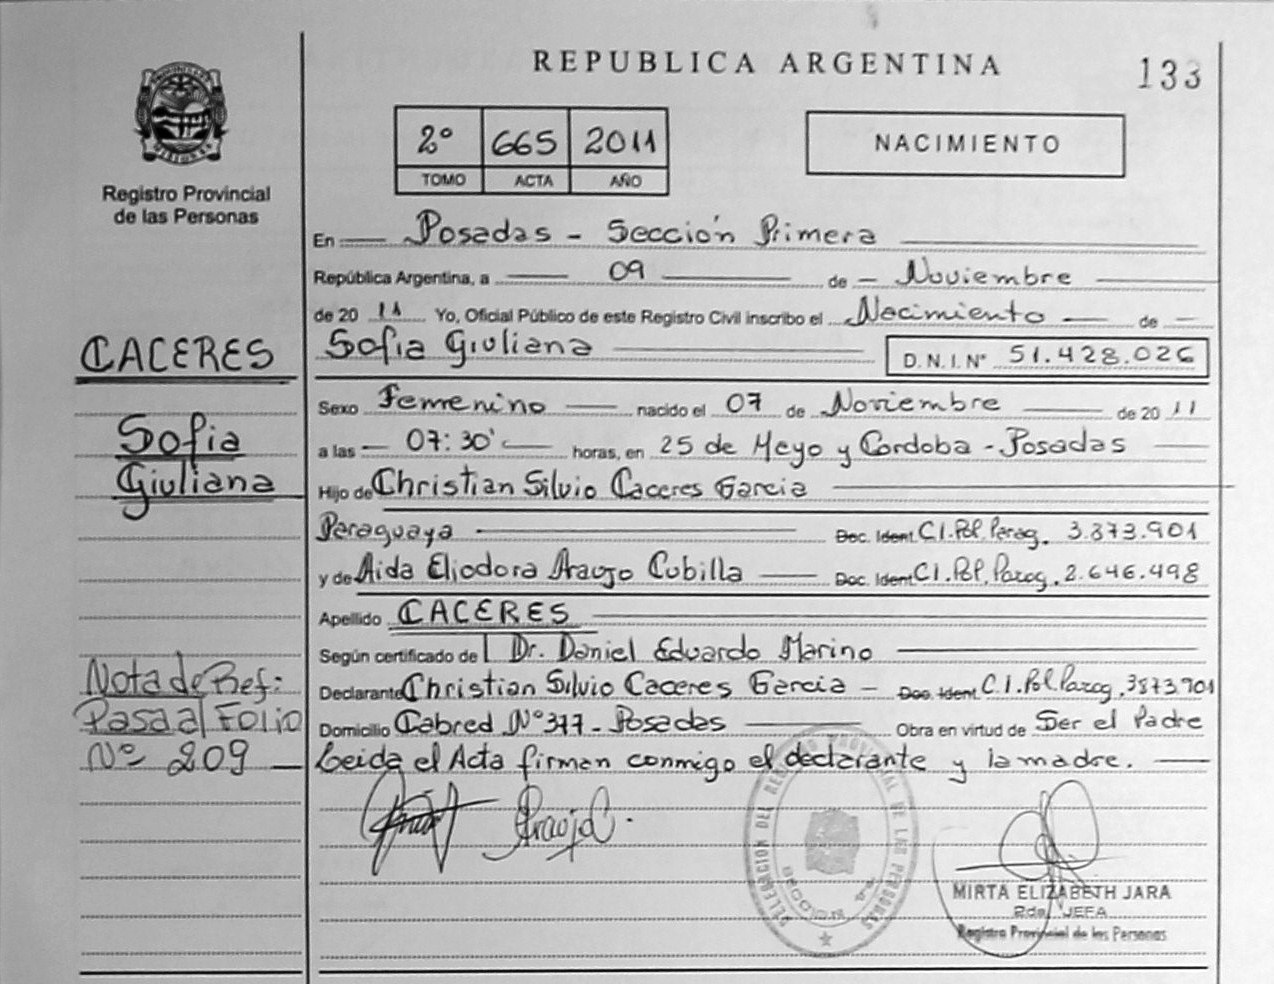 REPUBLICA ARGENTINA
133
PROVINCIA DE MISIONES
Registro Provincial
de las Personas
2º 665 2011
TOMO ACTA AÑO
NACIMIENTO
En Posadas - Sección Primera
República Argentina, a 09 de Noviembre
de 2011 Yo, Oficial Público de este Registro Civil inscribo el Nacimiento de
Sofia Giuliana D.N.I. Nº 51.428.026
CACERES
Sofia
Giuliana
Sexo Femenino nacido el 07 de Noviembre de 2011
a las 07:30' horas, en 25 de Mayo y Cordoba - Posadas
Hijo de Christian Silvio Caceres Garcia
Paraguaya Doc. Ident C.I. Pol. Parag. 3.873.901
y de Aida Eliodora Araujo Cubilla Doc. Ident C.I. Pol. Parag. 2.646.498
Apellido CACERES
Según certificado de Dr. Daniel Eduardo Marino
Declarante Christian Silvio Caceres Garcia - Doc. Ident C.I. Pol. Parag. 3873901
Domicilio Cabred Nº 377 - Posadas Obra en virtud de Ser el Padre
Leida el Acta firman conmigo el declarante y la madre.
Nota de Ref:
Pasa al FOLIO
Nº 209
AraujoC.
DELEGACION DEL REGISTRO PROVINCIAL DE LAS PERSONAS
SECCION 1ra.
MIRTA ELIZABETH JARA
2da. JEFA
Registro Provincial de las Personas